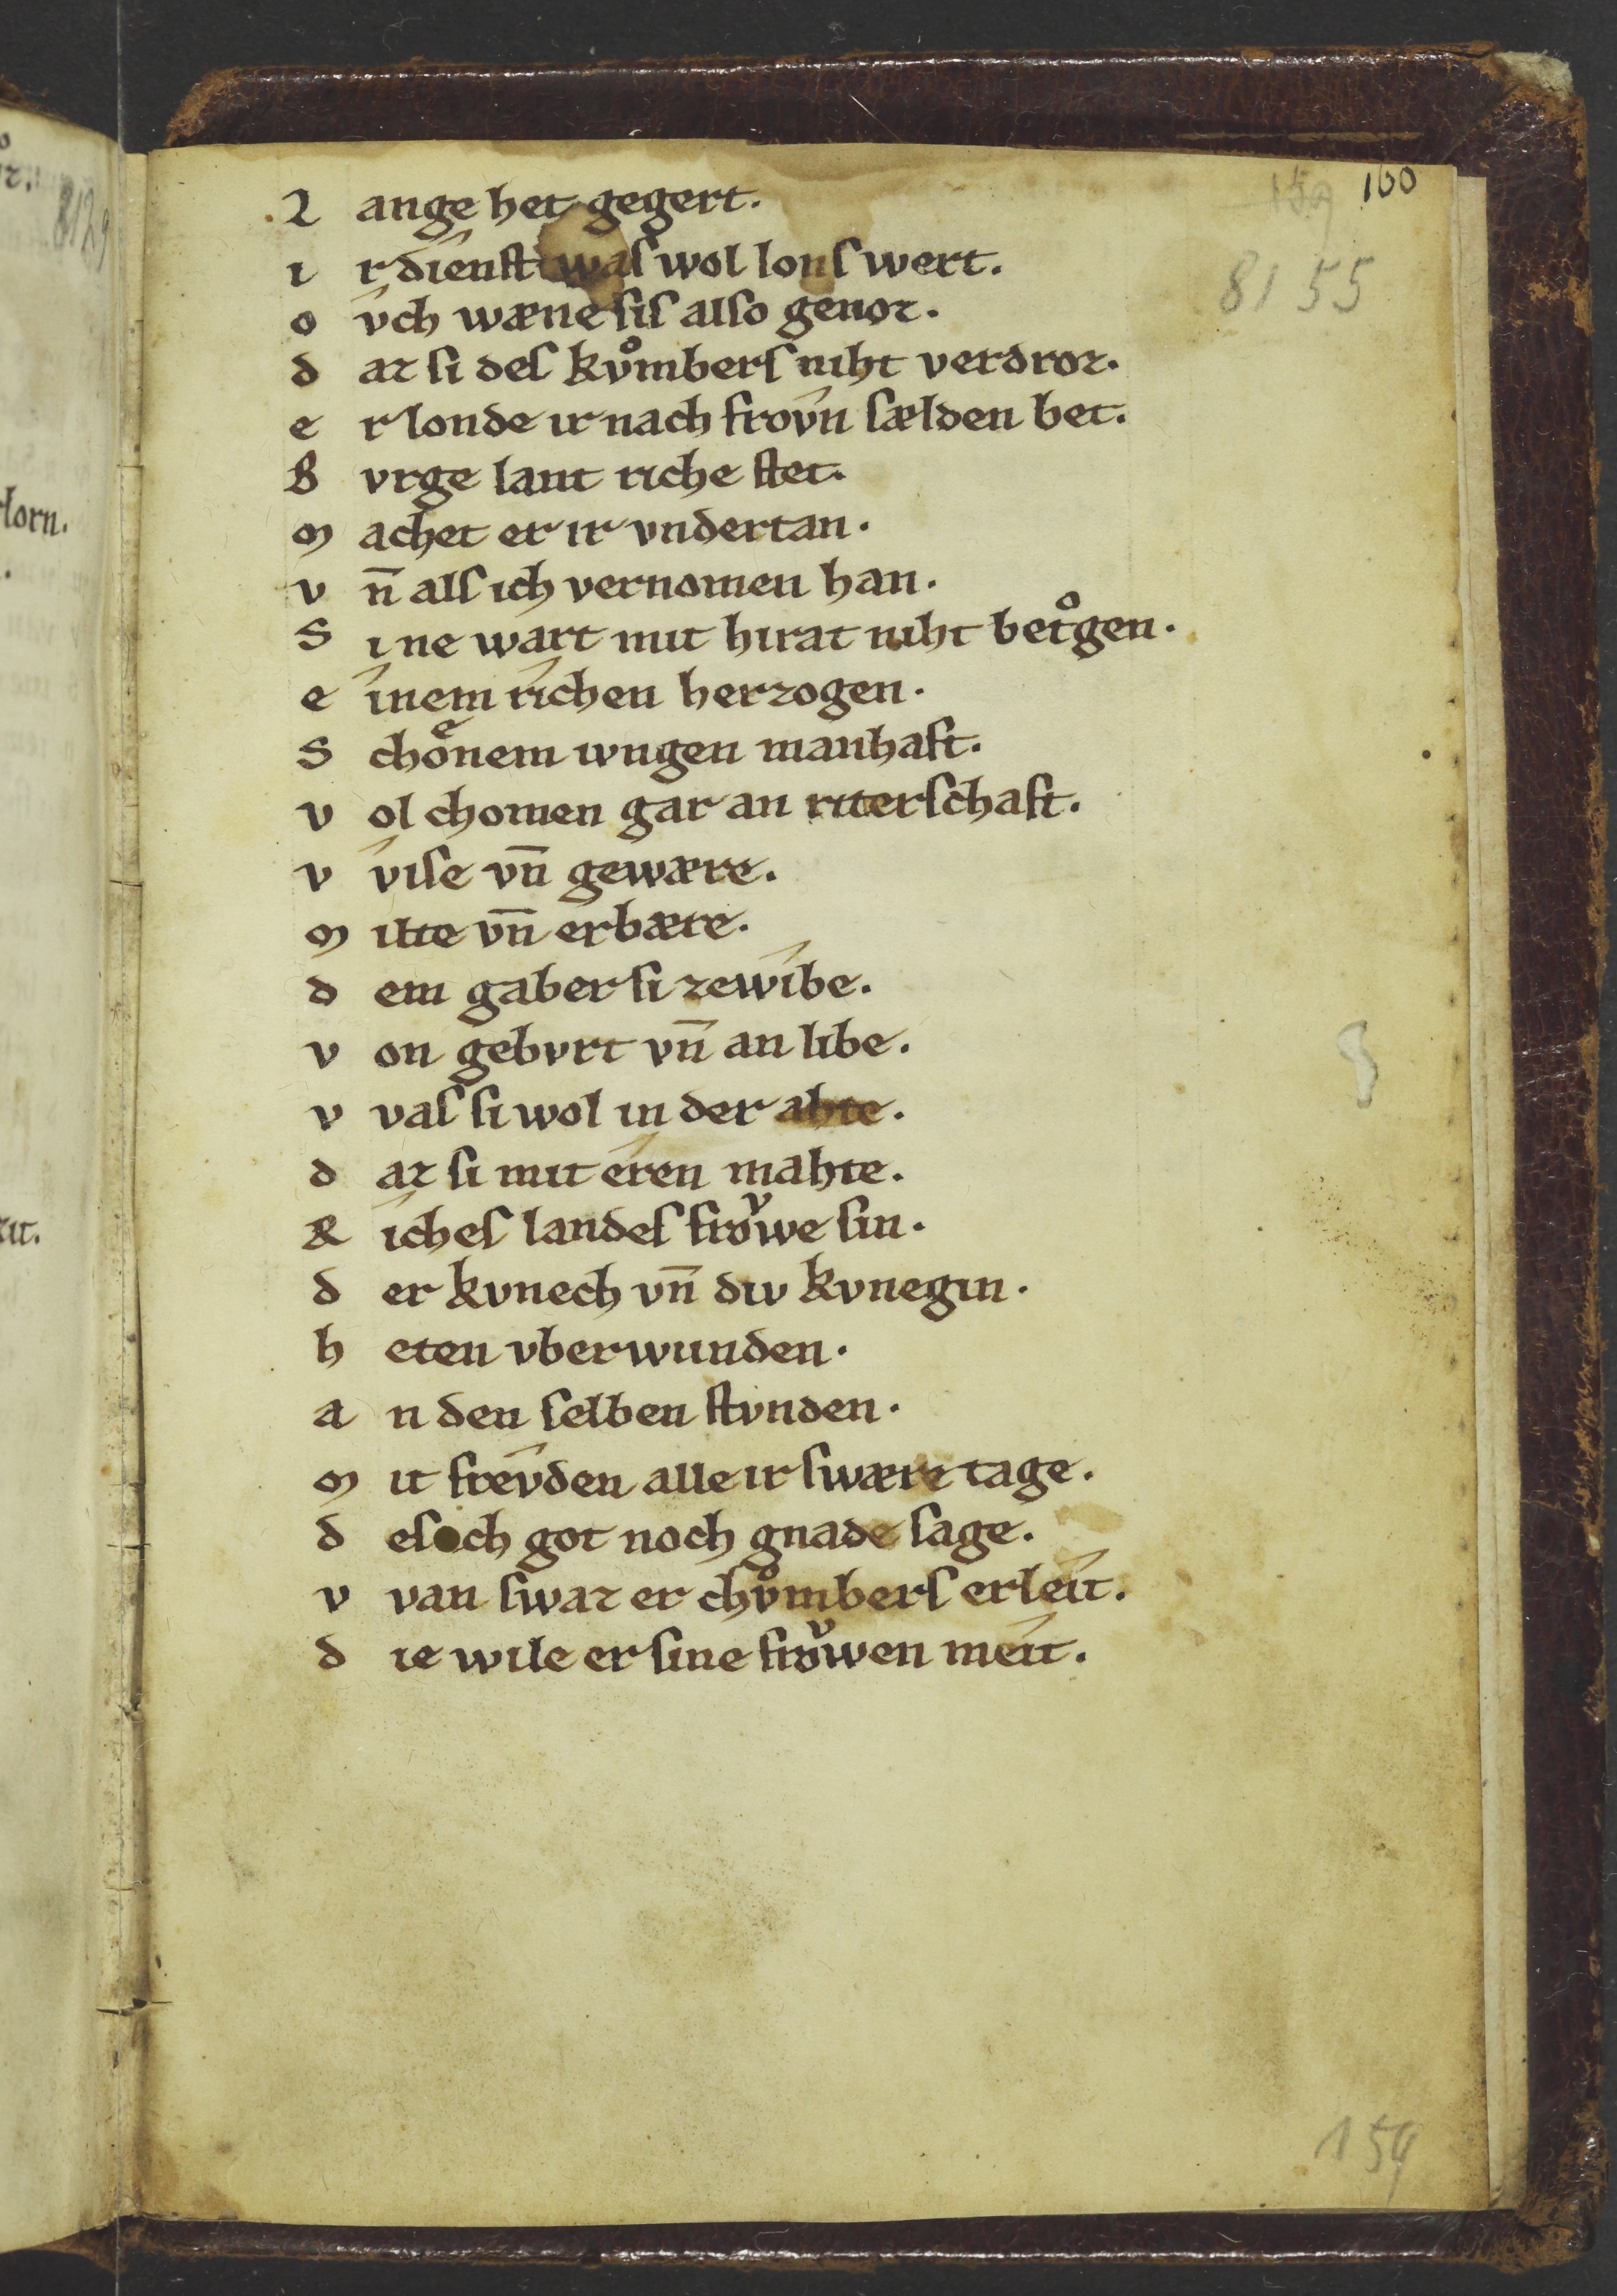 160
159
8155
L ange het gegert.
i r dîenst was wol lonſ wert.
o v́ch wæne ſiſ alſo genoz.
d az ſi deſ kvͦmberſ niht verdroz.
e r londe ir nach frov́n ſælden bet.
B vrge lant riche ſtet.
M achet er ir vndertan.
v n̄ alſ ich vernomen han.
S i ne wart mit hirat niht betͦgen.
e ínem ríchen herzogen.
S choͤnem ivngen manhaft.
v ol chomen gar an riterſchaft.
v víſe vn̄ gewære.
M ilte vn̄ erbære.
d em gaber ſi zewíbe.
v on gebvrt vn̄ an libe.
v vaſ ſi wol in der ahte.
d az ſi mit éren mahte.
R ícheſ landeſ froͮwe ſin.
d er kvnech vn̄ div kvnegin.
h eten vberwunden.
a n den ſelben ſtvnden.
M it frev́den alle ir ſwære tage.
d eſ och got noch gnade ſage.
v van ſwaz er chvͦmberſ erleít.
d ie wile er ſine froͮwen meít.
159
8129
lorn.